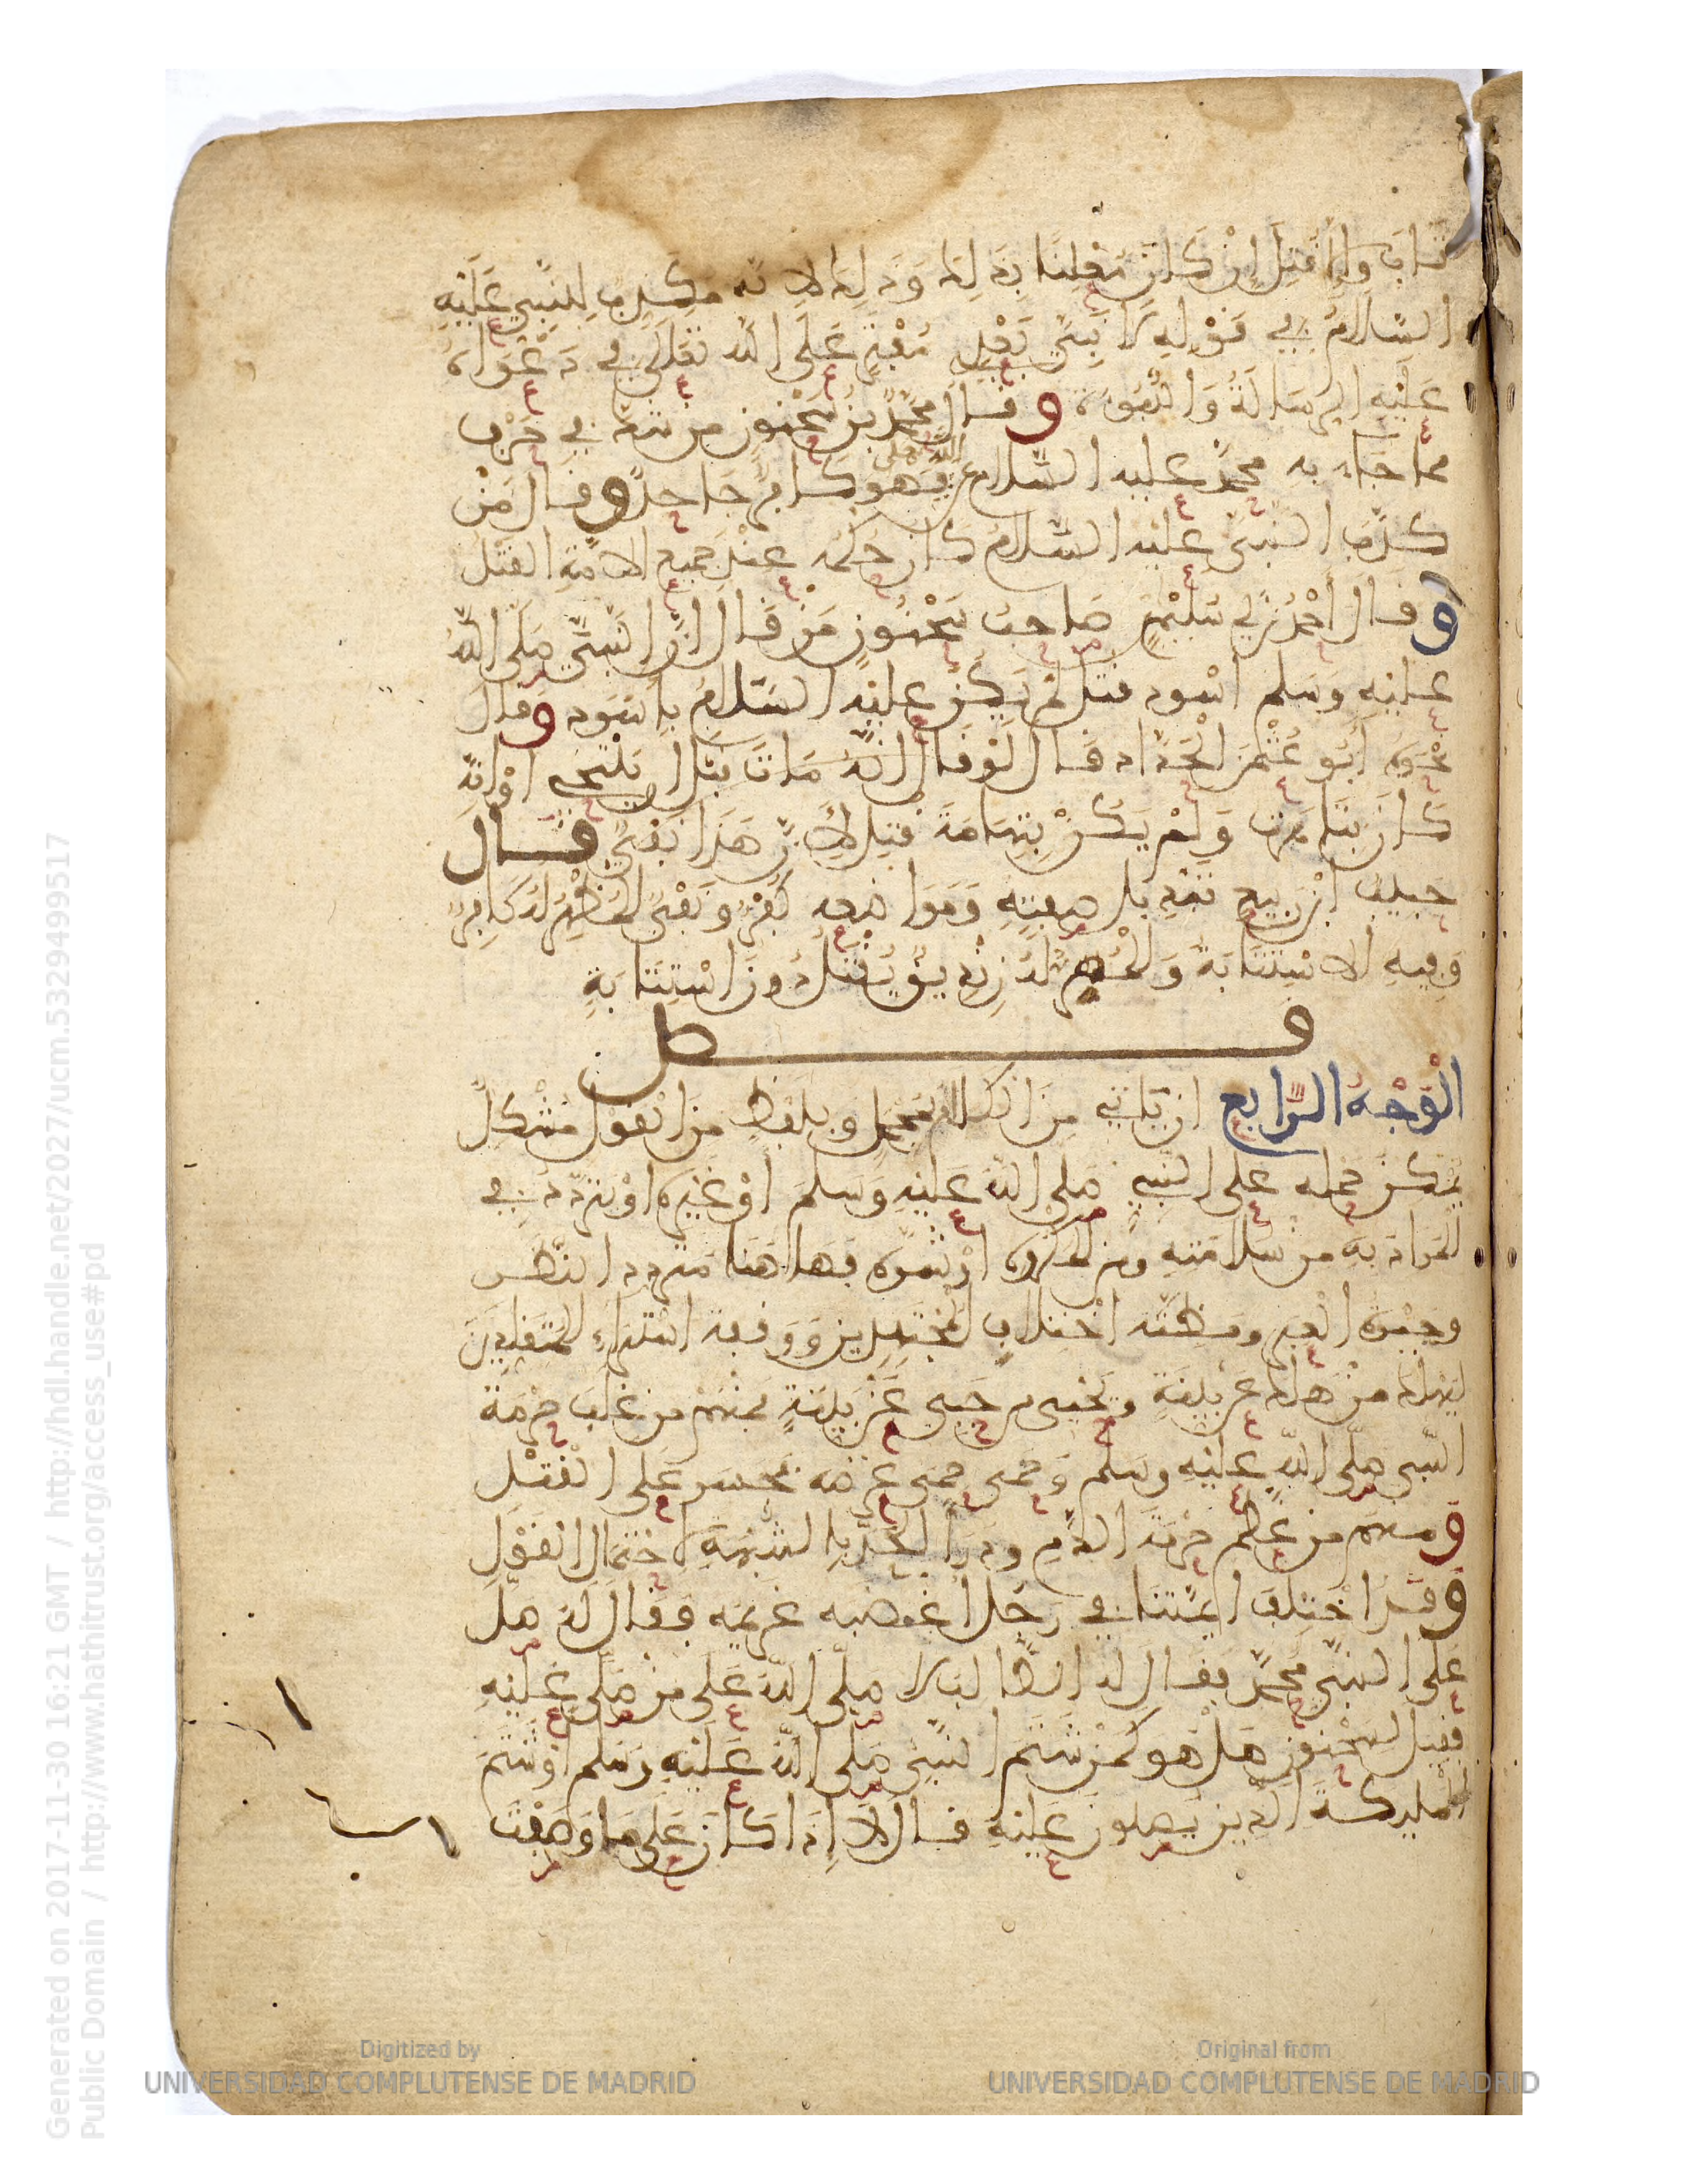 تاب وإلا قتل إن كان معلنا بذلك وذلك لانه مكذب للنبي عليه
السلام في قوله لا نبي بعدي مفتر على الله تعالى في دعواه
عليه الرسالة والنبوة وقال محمد بن سحنون من شك في حرف
مما جاء به محمد عليه السلام عن الله فهو كافر جاحد وقال من
كذب النبي عليه السلام كان حكمه عند جميع الامة القتل
وقال احمد بن ابي سليمن صاحب سحنون من قال ان النبي صلى الله
عليه وسلم اسود قتل لم يكن عليه السلام باسود وقال
نحوه أبو عثمن الحداد قال لو قال انه مات قبل ان يلتحي او انه
كان بتاهرت ولم يكن بتهامة قتل لأن هذا نفي قال
حبيب ابن ربيع تبديل صفته ومواضعه كفر ونفي المظهر له كافر
وفيه الاستتابة والمسر له زنديق يقتل دون استتابة
فصل
الوجه الرابع ان ياتي من الكلام بمجمل وبلفظ من القول مشكل
يمكن حمله على النبي صلى الله عليه وسلم أو غيره او يتردد في
المراد به من سلامته من المكروه او شره فها هنا متردد النظر
وحيرة العبر ومظنة اختلاف المجتهدين ووقفة استبراء المقلدين
ليهلك من هلك عن بينة ويحيى من حيي عن بينة فمنهم من غلب حرمة
النبي صلى الله عليه وسلم وحمى حمى عرضه فجسر على القتل
ومنهم من عظم حرمة الدم ودرأ الحد بالشبهة لاحتمال القول
وقد اختلف ائمتنا في رجل اغضبه غريمه فقال له صل
على النبي محمد فقال له الطالب لا صلى الله على من صلى عليه
فقيل لسحنون هل هو كمن شتم النبي صلى الله عليه وسلم أو شتم
الملئكة الذين يصلون عليه قال لا إذا كان على ما وصفت
Generated on 2017-11-30 16:21 GMT / http://hdl.handle.net/2027/ucm.5329499517
Public Domain / http://www.hathitrust.org/access_use#pd
Digitized by
UNIVERSIDAD COMPLUTENSE DE MADRID
Original from
UNIVERSIDAD COMPLUTENSE DE MADRID